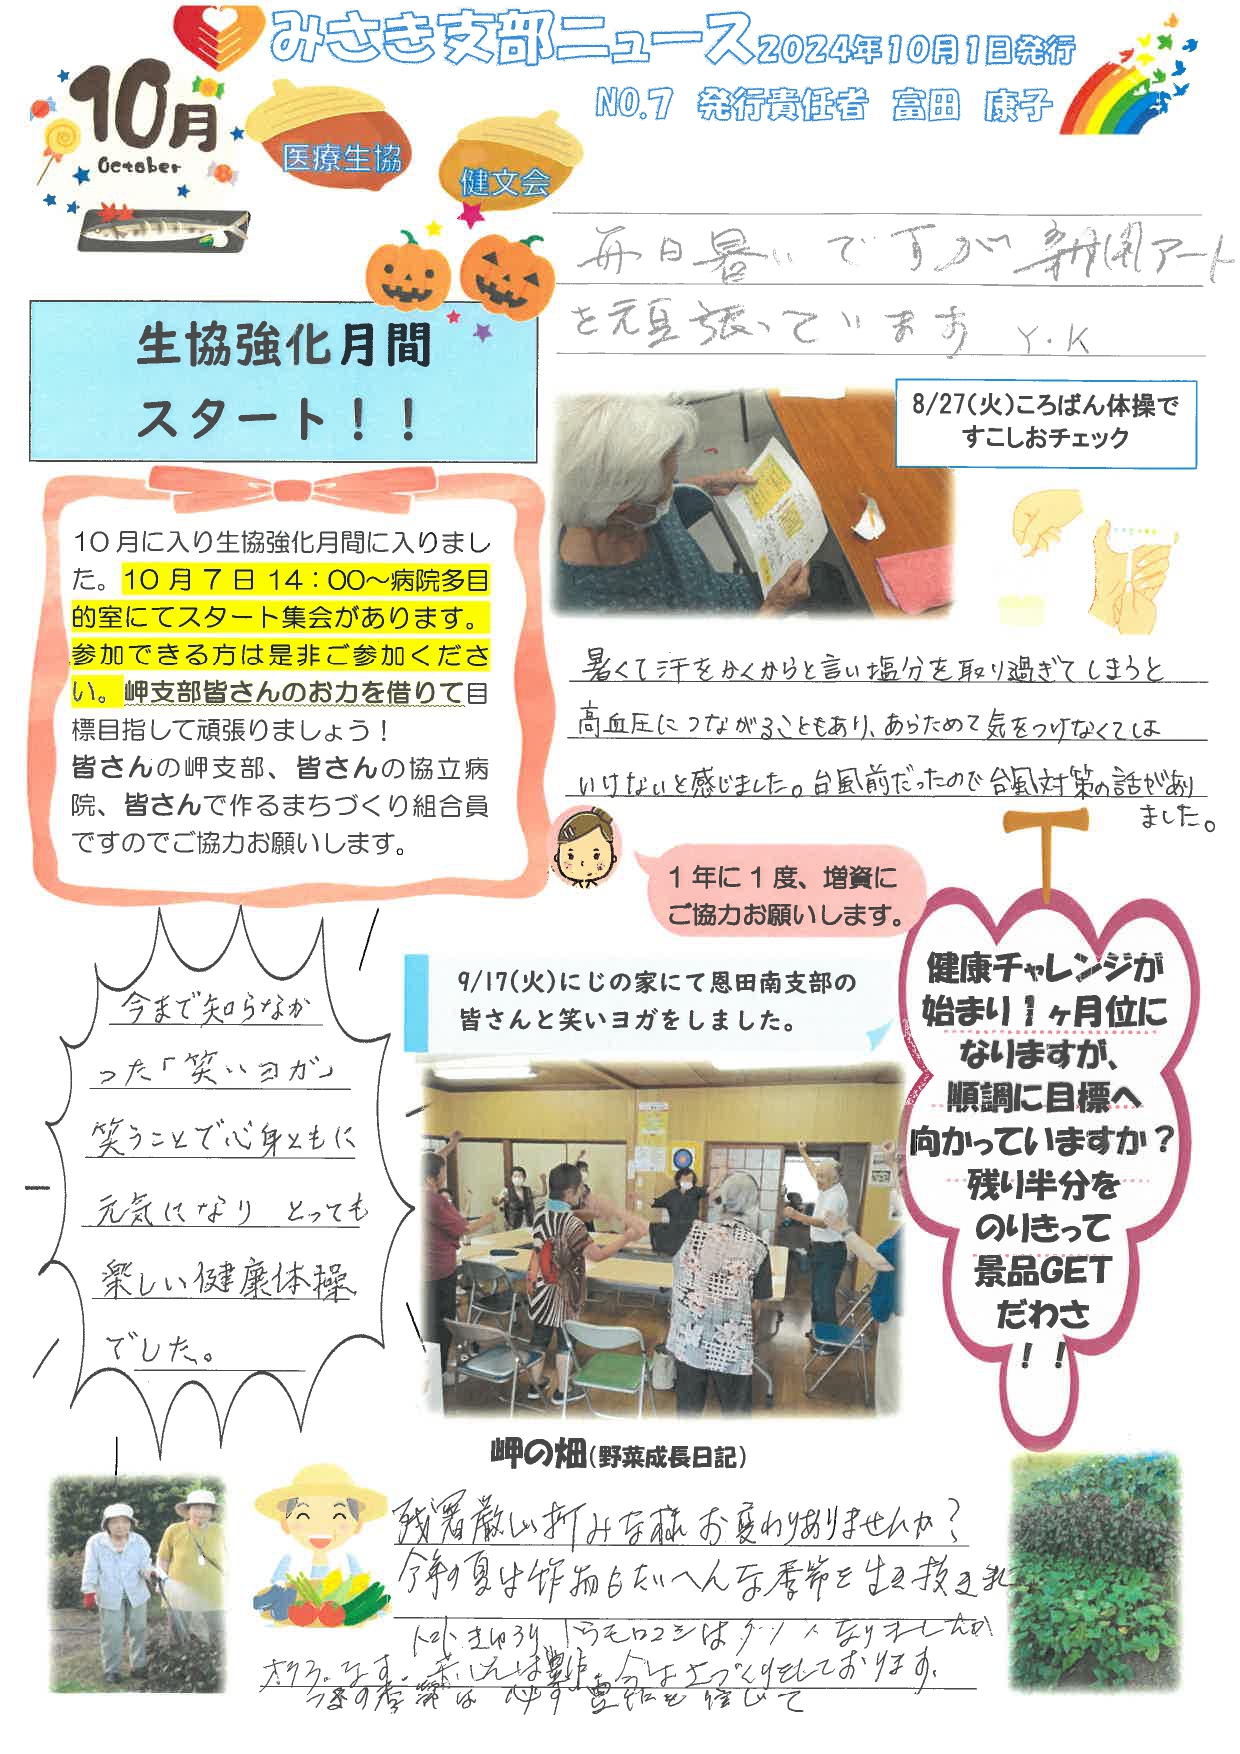 みさき支部ニュース2024年10月1日発行
NO.7 発行責任者 富田 康子
10月
October
医療生協
健文会
毎日暑いですが新聞アート
を元気張っています Y.K
生協強化月間
スタート！！
10月に入り生協強化月間に入りまし
た。10月7日14：00～病院多目
的室にてスタート集会があります。
参加できる方は是非ご参加くださ
い。岬支部皆さんのお力を借りて目
標目指して頑張りましょう！
皆さんの岬支部、皆さんの協立病
院、皆さんで作るまちづくり組合員
ですのでご協力お願いします。
8/27(火)ころばん体操で
すこしおチェック
暑くて汗をかくからと言い塩分を取り過ぎてしまうと
高血圧につながることもあり、あらためて気をつけなくては
いけないと感じました。台風前だったので台風対策の話があり
ました。
1年に1度、増資に
ご協力お願いします。
今まで知らなか
った「笑いヨガ」
笑うことで心身ともに
元気になり とっても
楽しい健康体操
でした。
9/17(火)にじの家にて恩田南支部の
皆さんと笑いヨガをしました。
健康チャレンジが
始まり1ヶ月位に
なりますが、
順調に目標へ
向かっていますか？
残り半分を
のりきって
景品GET
だわさ
！！
岬の畑(野菜成長日記)
残暑厳しい折みな様お変わりありませんか？
今年の夏は作物もたいへんな季節を生き抜き
きゅうり トウモロコシは なりましたが
オクラ、なす、 は豊作。今は土づくりをしております。
つぎの季節は 必ず豊作を信じて